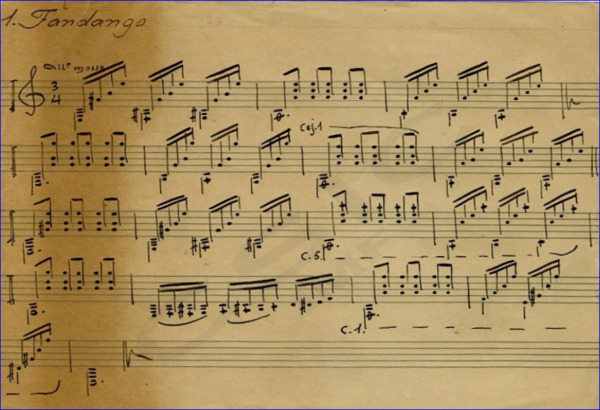 1. Fandango
All° mosso
3
4
Cej.1
C.5.
C.1.